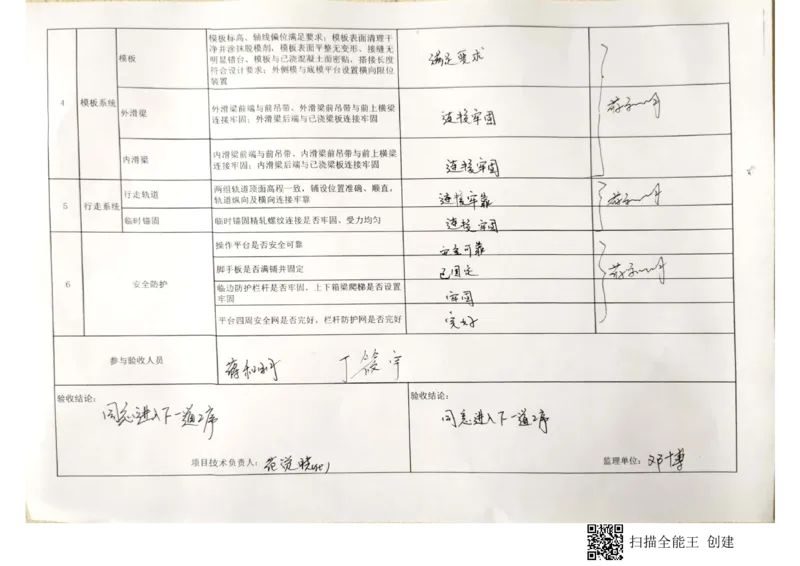 4
模板系统
模板
模板标高、轴线偏位满足要求；模板表面清理干
净并涂抹脱模剂，模板表面平整无变形、接缝无
明显错台。模板与已浇混凝土面密贴，搭接长度
符合设计要求；外侧模与底模平台设置横向限位
装置
满足要求
外滑梁
外滑梁前端与前吊带、外滑梁前吊带与前上横梁
连接牢固；外滑梁后端与已浇梁板连接牢固
连接牢固
内滑梁
内滑梁前端与前吊带、内滑梁前吊带与前上横梁
连接牢固；内滑梁后端与已浇梁板连接牢固
连接牢固
5
行走系统
行走轨道
两组轨道顶面高程一致，铺设位置准确、顺直，
轨道纵向及横向连接牢靠
连接牢靠
临时锚固
临时锚固精轧螺纹连接是否牢固、受力均匀
连接牢固
6
安全防护
操作平台是否安全可靠
安全可靠
脚手板是否满铺并固定
已固定
临边防护栏杆是否牢固，上下箱梁爬梯是否设置
牢固
牢固
平台四周安全网是否完好，栏杆防护网是否完好
完好
参与验收人员
验收结论：
同意进入下一道工序
项目技术负责人：
验收结论：
同意进入下一道工序
监理单位：邓博
扫描全能王 创建